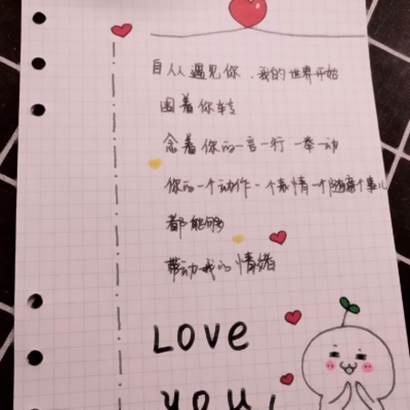 自从遇见你，我的世界开始
围着你转
念着你的一言一行 一举一动
你的一个动作 一个表情 一个
都能够
带动我的情绪
LOVE
you!